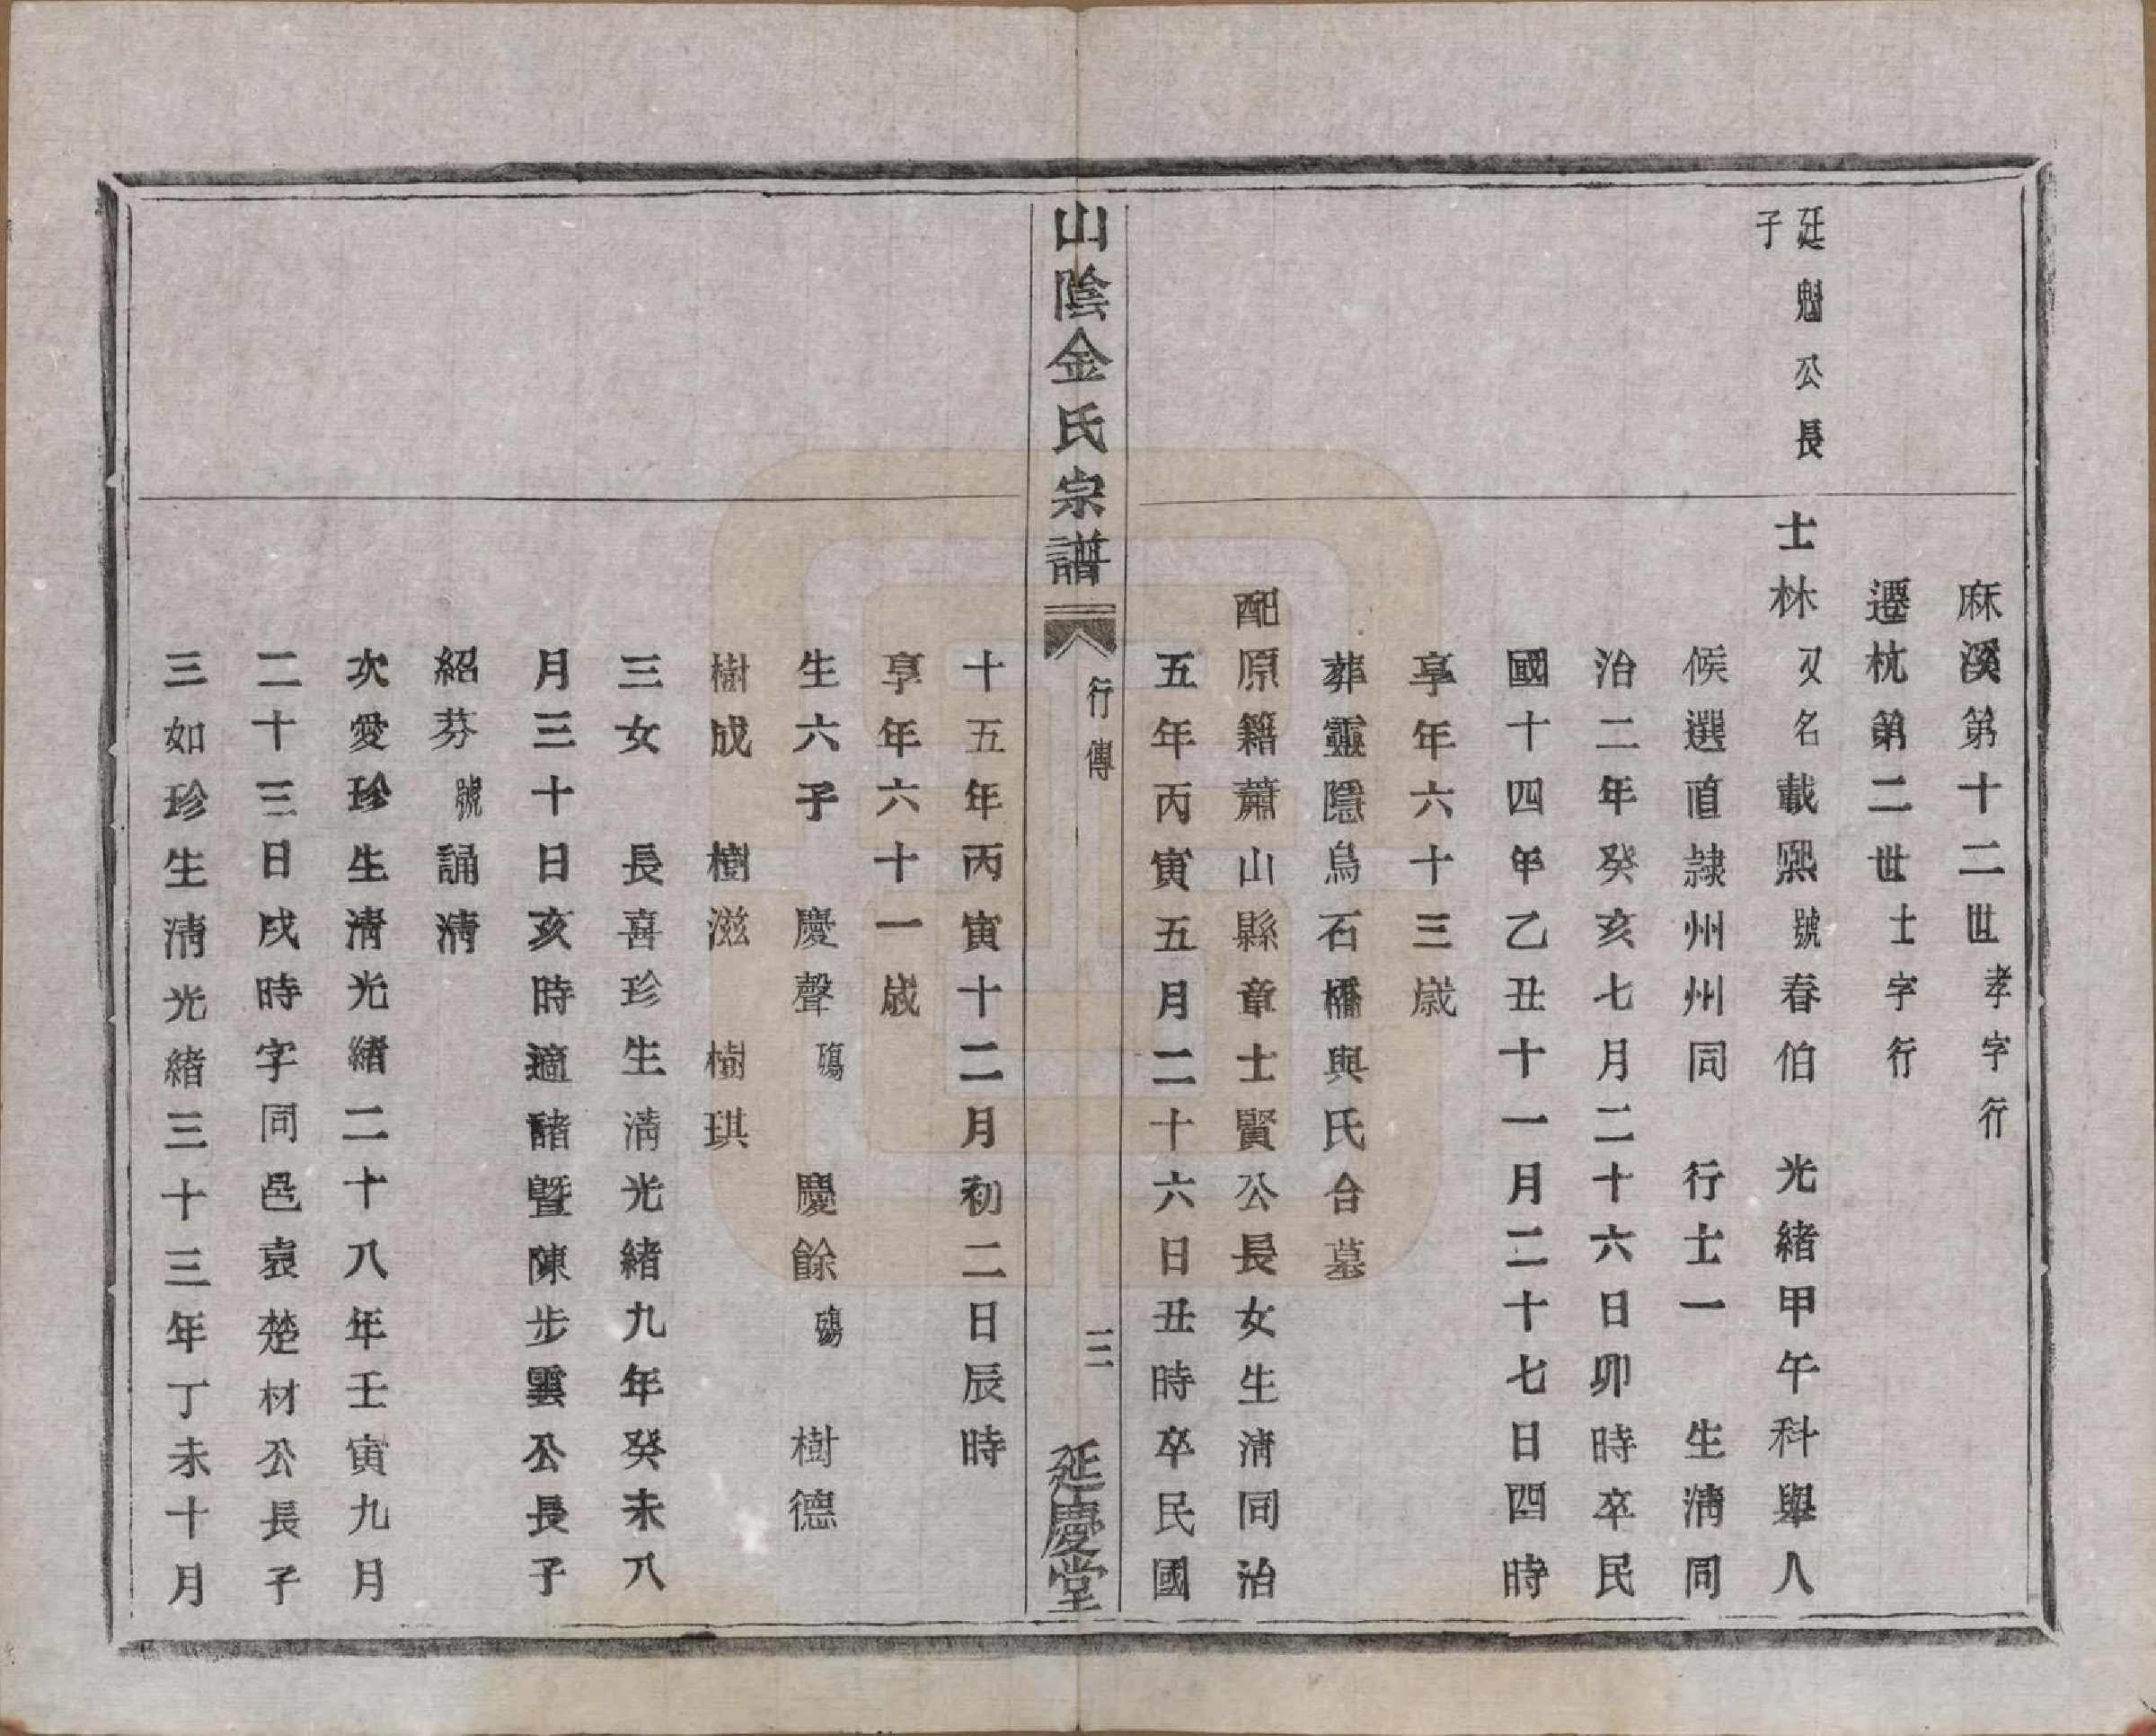 麻溪第十二世孝字行
遷杭第二世士字行
廷魁公長
子
士林又名載熙號春伯　光緒甲午科舉人
候選直隸州州同　行士一　生淸同
治二年癸亥七月二十六日卯時卒民
國十四年乙丑十一月二十七日四時
享年六十三歲
葬靈隱烏石橋與氏合墓
配原籍蕭山縣章士賢公長女生淸同治
五年丙寅五月二十六日丑時卒民國
山陰金氏宗譜　行傳　三　延慶堂
十五年丙寅十二月初二日辰時
享年六十一歲
生六子　慶聲殤　慶餘殤　樹德
樹成　樹滋　樹琪
三女　長喜珍生淸光緒九年癸未八
月三十日亥時適諸曁陳步雲公長子
紹芬號誦淸
次愛珍生淸光緒二十八年壬寅九月
二十三日戌時字同邑袁楚材公長子
三如珍生淸光緒三十三年丁未十月